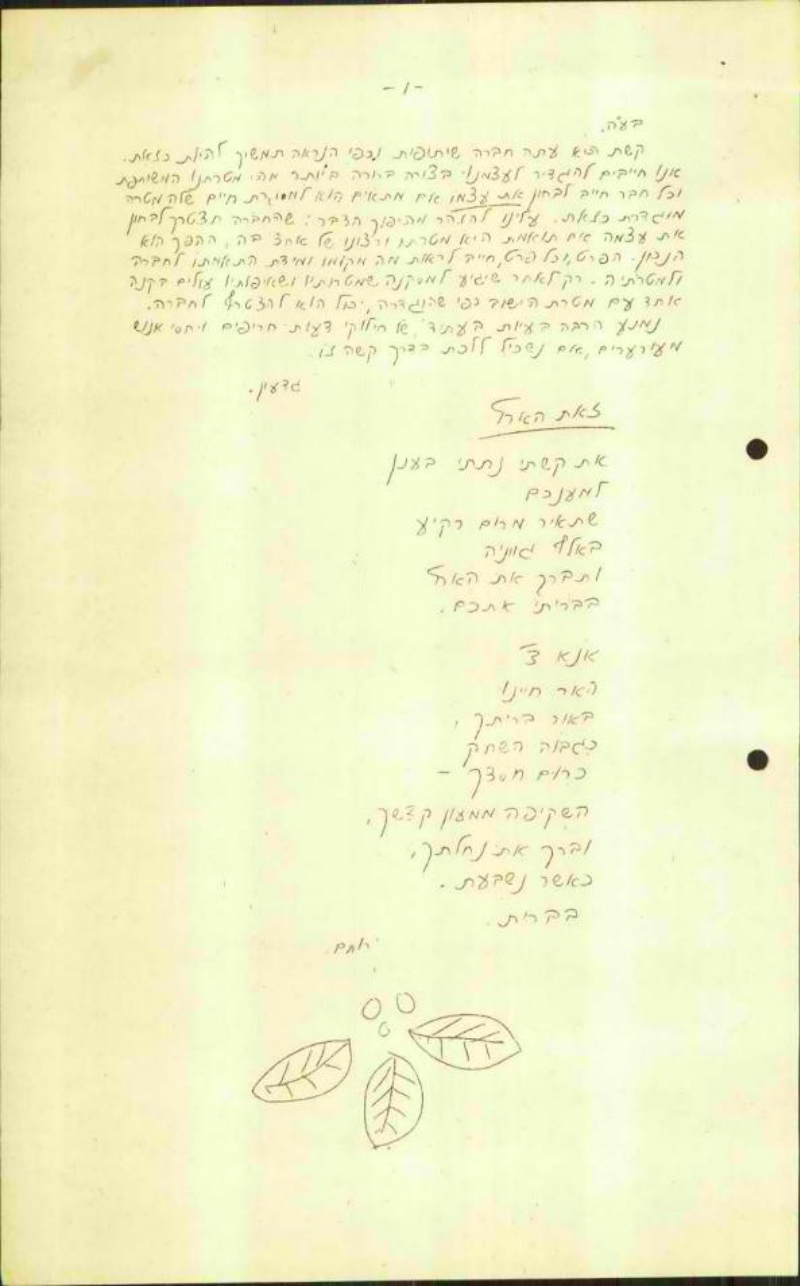 - 1 -
בע"ה.
קשת היא עתה חברה שיתופית וכפי הנראה תמשיך להיות כזאת.
אנו חייבים להגדיר לעצמנו בצורה ברורה ביותר מהי מטרתנו המשותפת
וכל חבר חייב לבחון את עצמו אם מתאים הוא למסגרת חיים שלה מטרה
מוגדרת כזאת. עלינו להזהר מהיפוך הדבר: שהחברה תצטרך לבחון
את עצמה אם תואמת היא מטרתו ורצונו של אחד בה, ההפך הוא
הנכון. הפרט, וכל פרט, חייב לראות מה מקומו ומידת התאמתו לחברה
ולמטרתיה. רק לאחר שיגיע למסקנה שמטרותיו ושאיפותיו עולים בקנה
אחד עם מטרת הישוב כפי שהוגדרה, יכול הוא להצטרף לחברה.
נמנע הרבה בעיות בעתיד, או חילוקי דעות חריפים ויחסי אנוש
מעורערים, אם נשכיל ללכת בדרך קשה זו.
גדעון.
זאת הארץ
את קשתי נתתי בענן
למענכם
שתאיר מרום רקיע
באלף גווניה
ותברך את הארץ
בבריתי אתכם.
אנא ד'
האר חיינו
באור בריתך,
כגבוה השחק
כרום חסדך -
השקיפה ממעון קדשך,
וברך את נחלתך,
כאשר נשבעת.
בברית.
רותם.